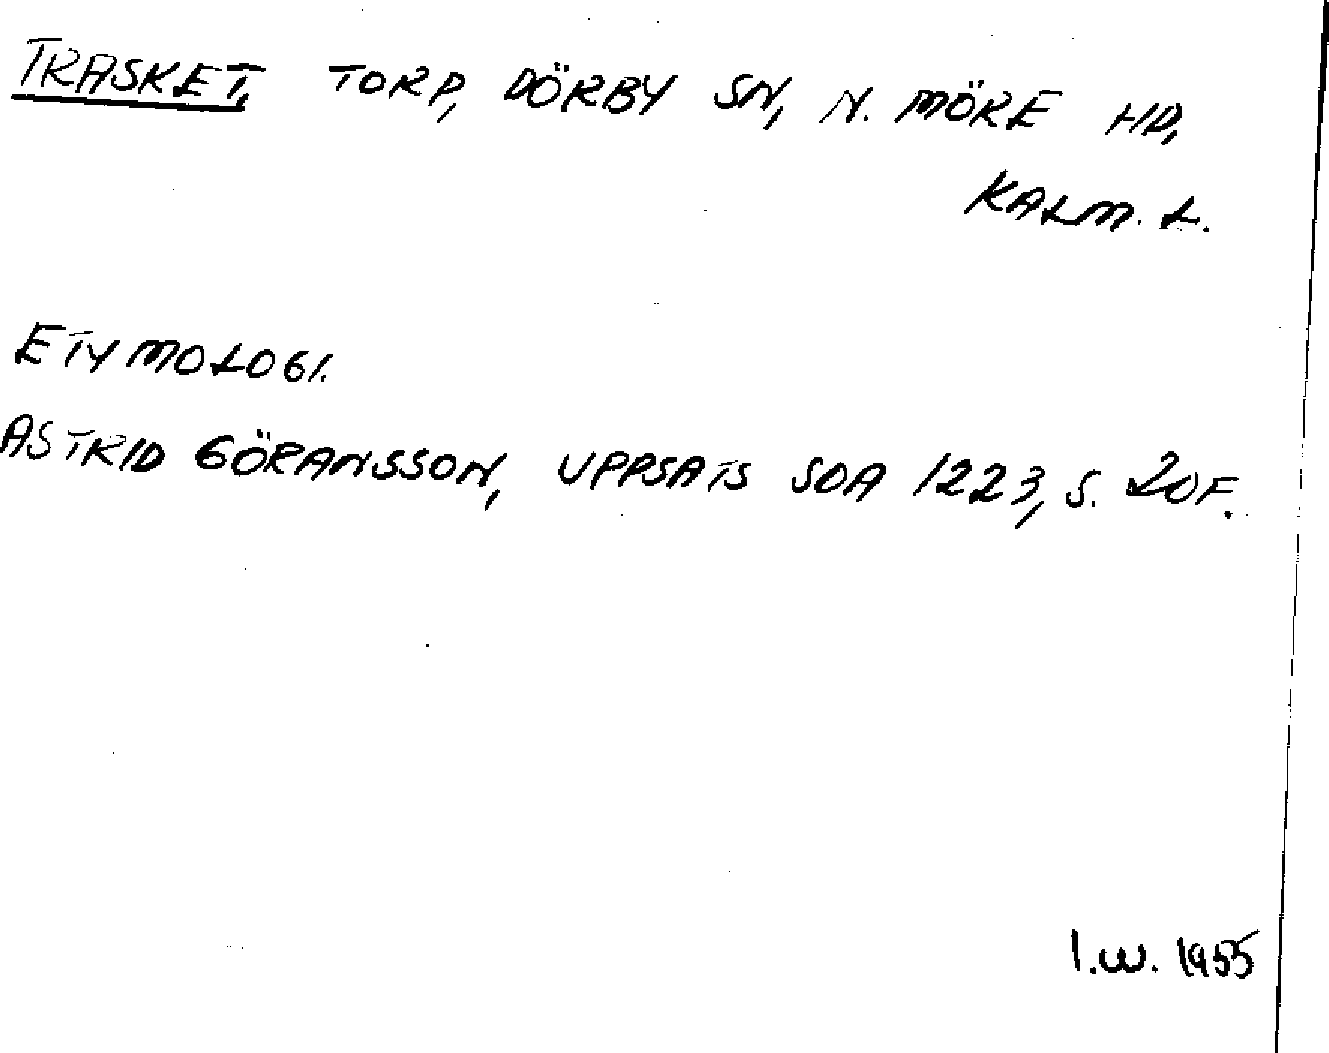 TRASKET, TORP, DÖRBY SN, N. MÖRE HD,
KALM. L.
ETYMOLOGI.
ASTRID GÖRANSSON, UPPSATS SOA 1223, S. 20F.
I.W. 1955